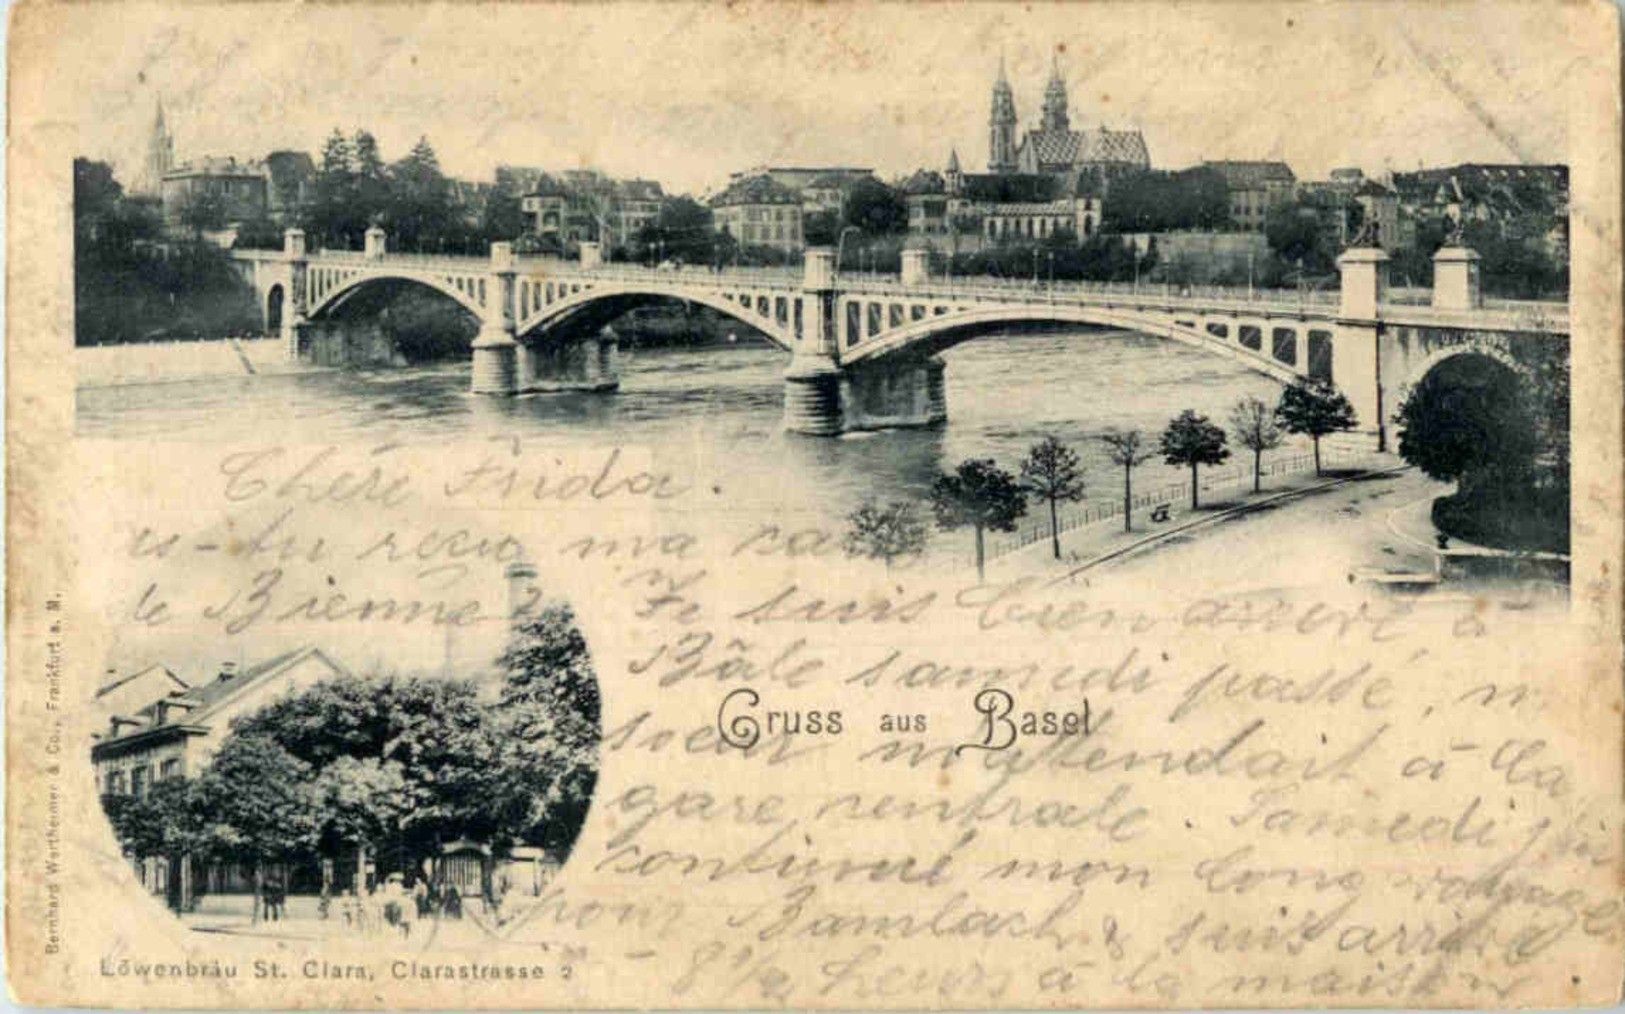 Chére Frida.
as-tu reçu ma
de Bienne? Je suis bien arrivé à
Bâle samedi passé,
Gruss aus Basel
soeur m'attendait à la
gare centrale. Samedi j'ai
continué mon long voyage
pour Bambach & suis arrivé
8 1/2 heurs à la maison
Löwenbräu St. Clara, Clarastrasse 2
Bernhard Wertheimer & Co., Frankfurt a. M.